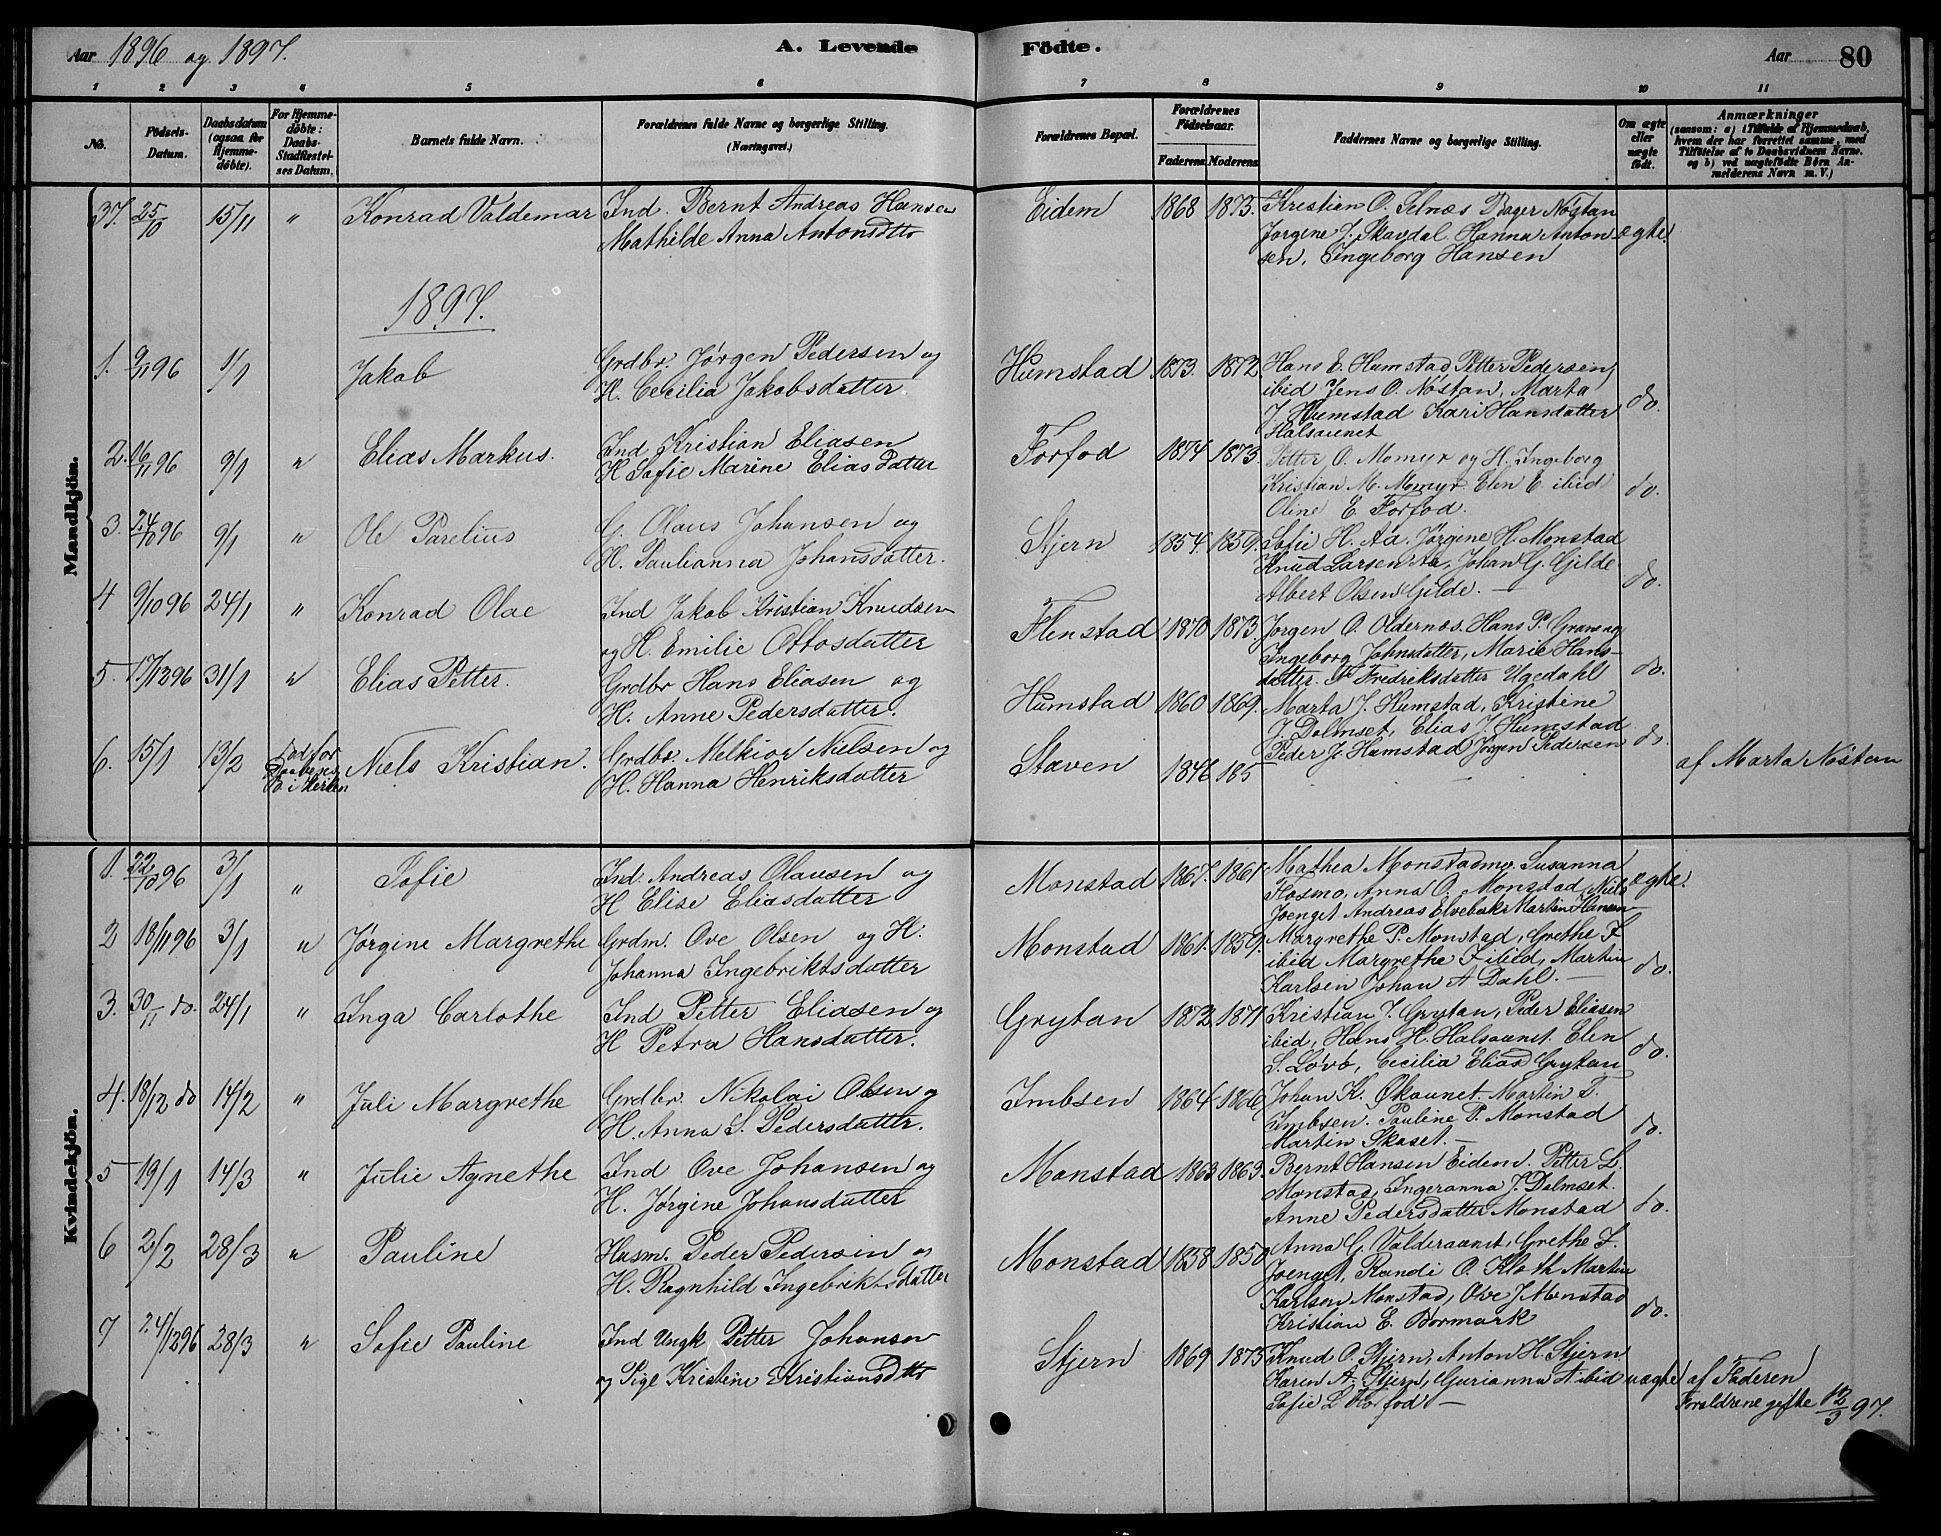 Aar 1896 og 1897. A. Levende Födte. Aar 80
1 2 3 4 5 6 7 8 9 10 11
No. Födsels-Datum. Daabsdatum (ogsaa for Hjemme-döbte). For Hjemme-döbte: Daabs-Stadfæstel-ses Datum. Barnets fulde Navn. Forældrenes fulde Navne og borgerlige Stilling. (Næringsvei.) Forældrenes Bopæl. Forældrenes Födselsaar. Faderens Moderens Faddernes Navne og borgerlige Stilling. Om ægte eller uægte födt. Anmærkninger (saasom: a) i Tilfælde af Hjemmedaab, hvem der har forrettet samme, med Tilföielse af to Daabsvidners Navne, og b) ved uægtefödte Börn An-melderens Navn m. V.)
Mandkjön.
37. 25/10 15/11 " Konrad Valdemar Ind. Bernt Andreas Hansen Eidem 1868 1873. Kristian O. Selnæs Bager Nøstan
Mathilde Anna Antonsdtts Jørgine J. Skavdal. Hanna Anton- ægte.
sen, Ingeborg Hansen
1897.
1. 9/11 96 1/1 Jakob Grdbr. Jørgen Pedersen og Humstad 1873. 1872 Hans E. Humstad Petter Pedersen,
H. Cecilia Jakobsdatter. ibid Jens O. Nøstan, Marta
J. Humstad Kari Hansdatter do.
Halsaunet
2. 16/11 96 9/1 " Elias Markus. Ind Kristian Eliasen Forfod 1874 1873. Petter O. Momyr og H. Ingeborg
H Sofie Marine Eliasdatter Kristian M. Momyr. Elen E. ibid do.
Oline E. Forfod.
3. 24/10 96 9/1 " Ole Parelius G. Olaus Johansen og Stjern 1854 1859. Sofie H. Aa. Jørgine H. Monstad
H. Paulianna Johansdatter. Knud Larsen Aa, Johan G. Gjilde do.
Albert Olsen Gilde.
4 9/10 96 24/1 " Konrad Olae Ind Jakob Kristian Knudsen Flenstad 1870 1873. Jørgen O. Oldernæs. Hans P.
og H. Emilie Ottosdatter Ingeborg Johnsdatter, Marie Hans-
datter. Fredriksdatter Ugedahl do.
5. 17/12 96 31/1 " Elias Petter. Grdbr Hans Eliasen og Humstad 1860 1869. Marta J. Humstad, Kristine
H. Anne Pedersdatter. J. Dolmset, Elias J Humstad do.
Peder J. Humstad Jørgen Pedersen
6. 15/1 13/2 Død før Niels Kristian. Grdbr. Melkior Nielsen og Staven 1846 185 af Marta Nøstan
H. Hanna Henriksdatter
Kvindekjön.
1. 22/10 96 3/1 " Sofie Ind. Andreas Olausen og Monstad 1867. 1861. Mathea Monstadmo, Susanna
H Elise Eliasdatter Flosmo, Anna O. Monstad, Niels ægte.
Joenget Andreas Elvebakk Martin Hansen
2 18/11 96 3/1 " Jørgine Margrethe Grdm. Ove Olsen og H: Monstad 1861. 1859. Margrethe P. Monstad, Grethe F.
Johanna Ingebriktsdatter ibid Margrethe F ibid, Martin do.
Karlsen Johan A Dahl.
3. 30/11 do. 24/1 " Inga Carlothe Ind Petter Eliasen og Grytan 1872 1871 Kristian J. Grytan, Peder Eliasen
H Petra Hansdatter. ibid, Hans H. Halsaunet. Elen do.
S. Løvø, Cecilia Elias Grytan
4. 18/12 do 14/2 " Juli Margrethe Grdbr. Nikolai Olsen og Imbsen 1864 1866 Johan K. Økaunet. Martin T.
H. Anna S. Pedersdatter. Imbsen. Pauline P. Monstad do.
Martin Skaset.
5 19/1 14/3 " Julie Agnethe Ind Ove Johansen og Monstad 1863 1863. Bernt Hansen Eidem. Petter L.
H. Jørgine Johansdatter Monstad, Ingeranna J. Dolmset. do.
Anne Pedersdatter Monstad
6 2/2 28/3 " Pauline Husm. Peder Pedersen og Monstad 1858 1850 Anna G. Valderaunet, Grethe L.
H. Ragnhild Ingebriktsdatter Joenget, Randi O. Kloth Martin
Karlsen Monstad, Ove J. Monstad do.
Kristian E. Bormark
7 24/12 96 28/3 " Sofie Pauline Ind Ungk. Petter Johansen Stjern 1869 1875 Knud O. Stjern, Anton H. Stjern
og Pige Kristine Kristiansdtts Karen A. Stjern, Gurianna A ibid uægte af Faderen
Sofie L Forfod Forældrene gifte 12/3 97.